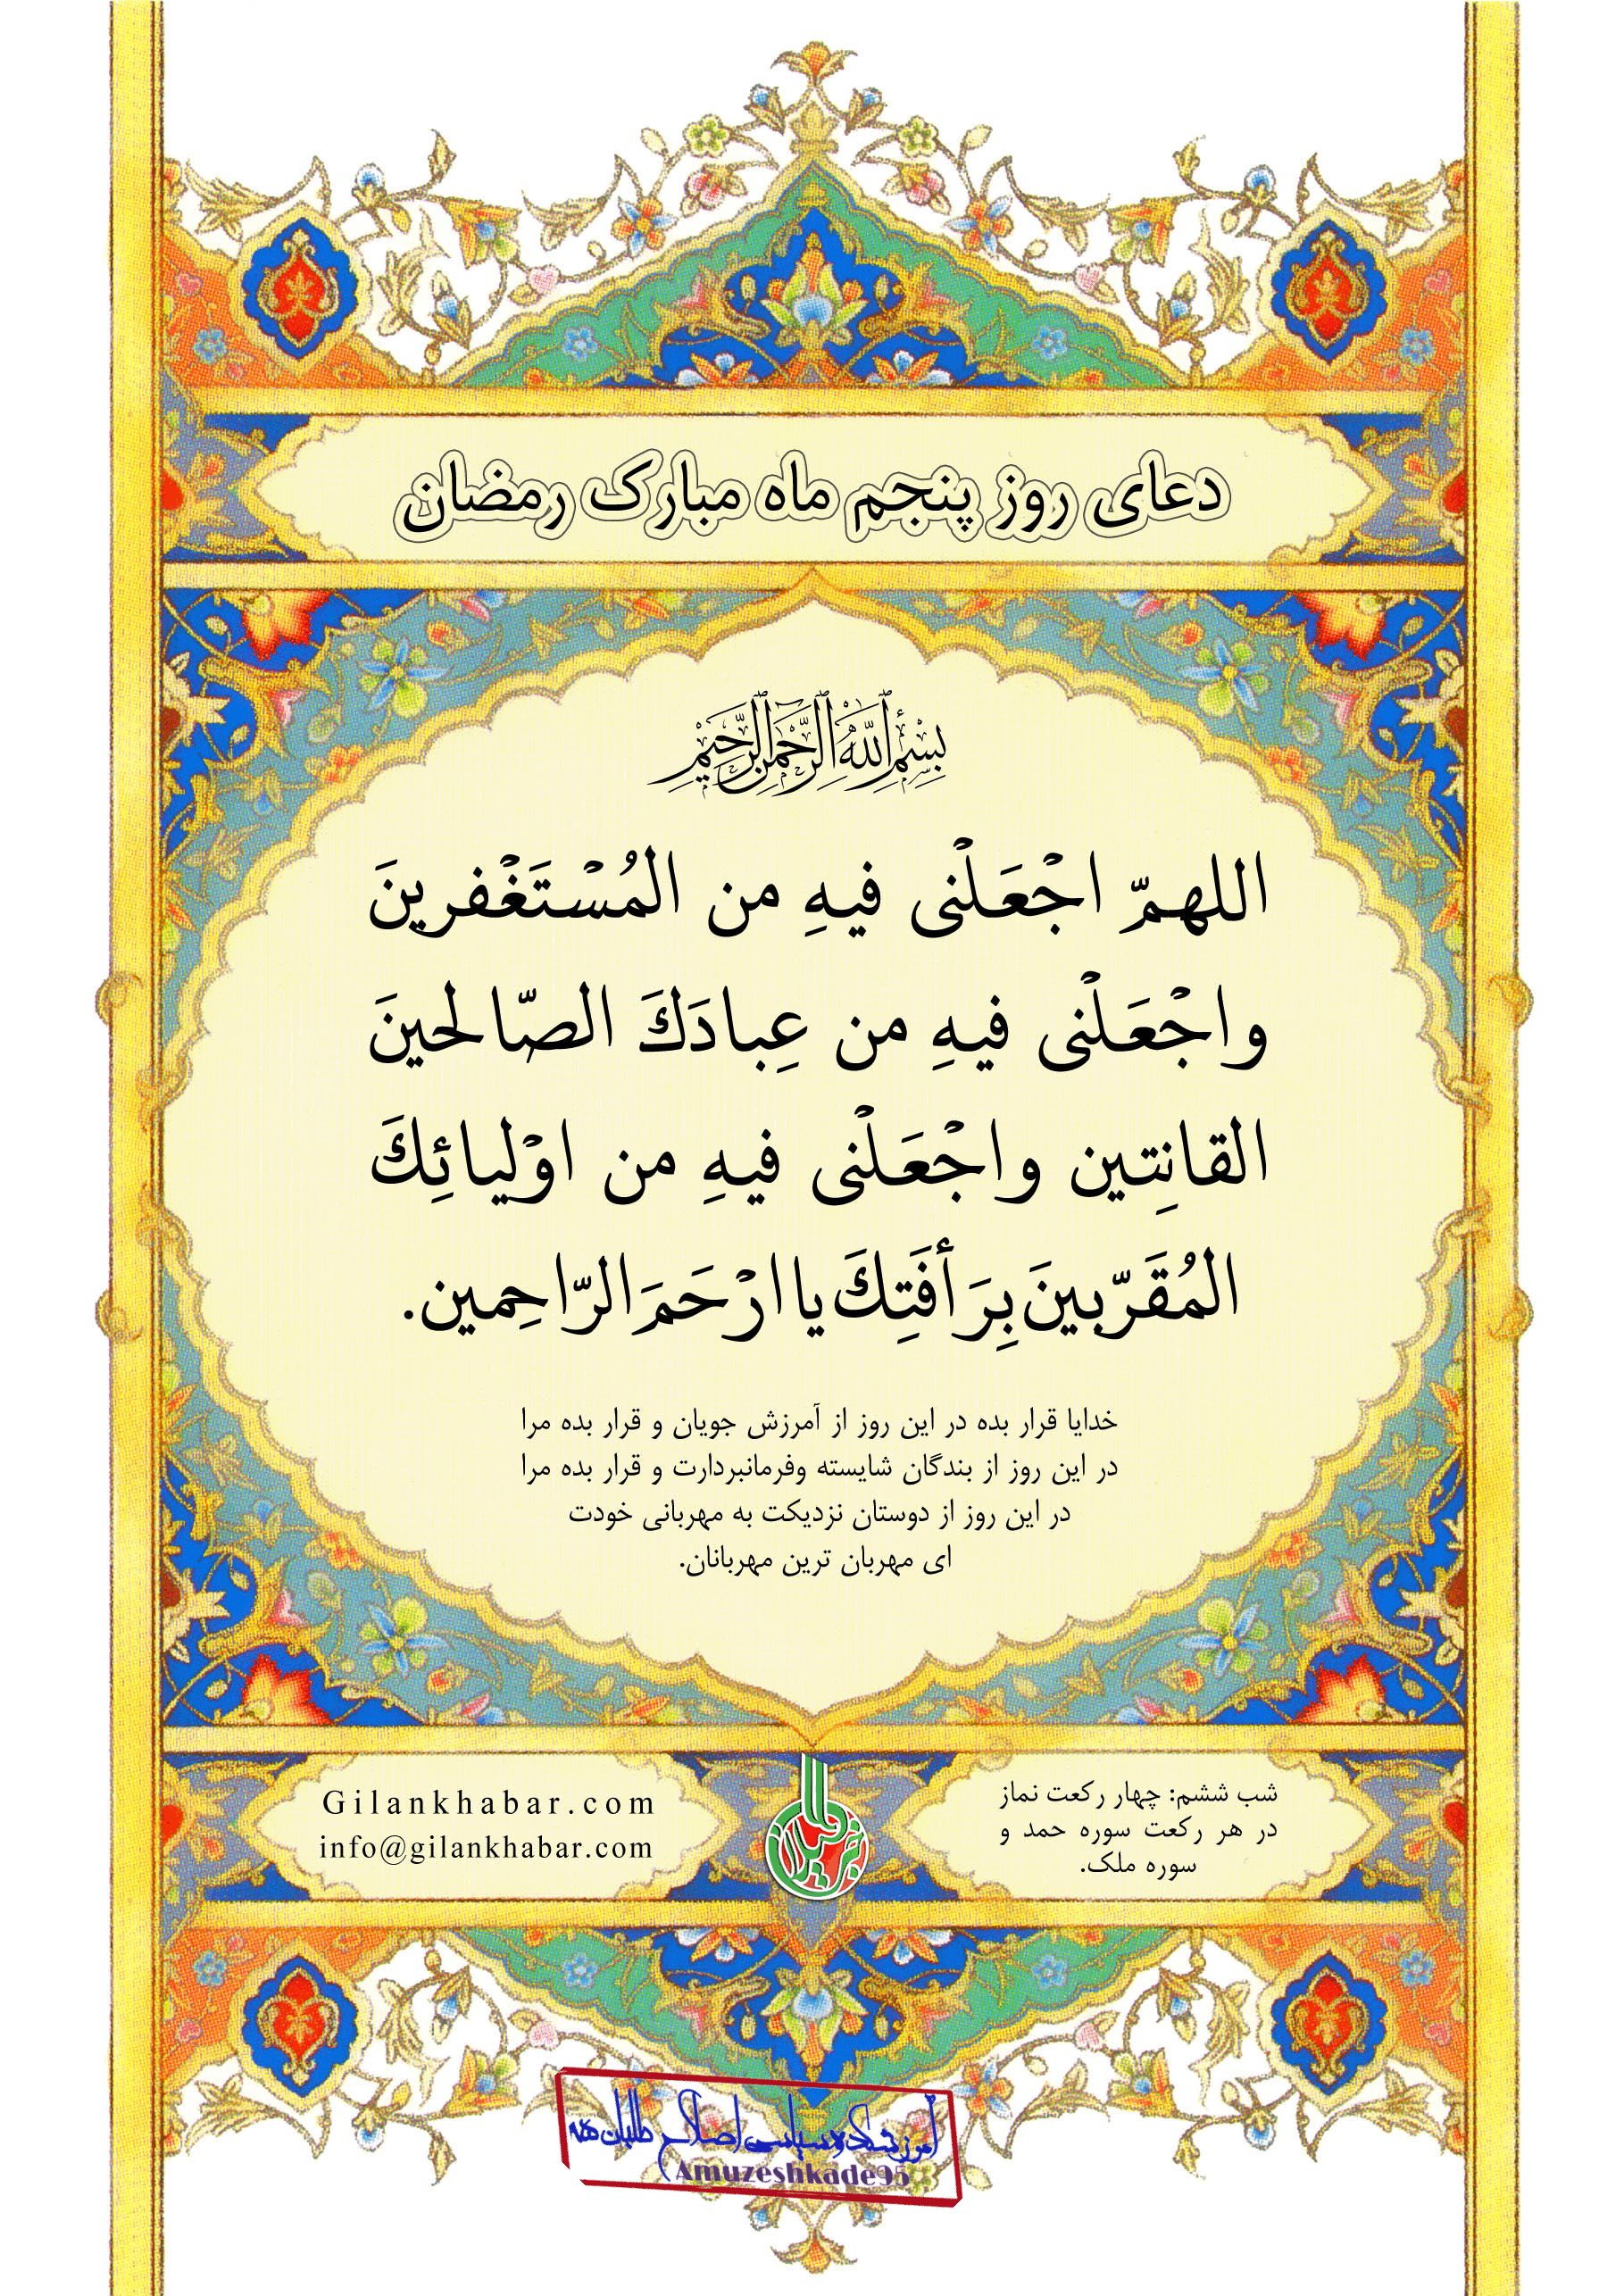 دعای روز پنجم ماه مبارک رمضان
بِسْمِ ٱللَّهِ ٱلرَّحْمَٰنِ ٱلرَّحِيمِ
اللهمّ اجْعَلْنی فیهِ من المُسْتَغْفرینَ
واجْعَلْنی فیهِ من عِبادَكَ الصّالحینَ
القانِتین واجْعَلْنی فیهِ من اوْلیائِكَ
المُقَرّبینَ بِرَأفَتِكَ یا ارْحَمَ الرّاحِمین.
خدایا قرار بده در این روز از آمرزش جویان و قرار بده مرا
در این روز از بندگان شایسته وفرمانبردارت و قرار بده مرا
در این روز از دوستان نزدیکت به مهربانی خودت
ای مهربان ترین مهربانان.
شب ششم: چهار رکعت نماز
در هر رکعت سوره حمد و
سوره ملک.
Gilankhabar.com
info@gilankhabar.com
خبر گیلان
آموزشکده سیاسی اصلاح طلبان
Amuzeshkade95